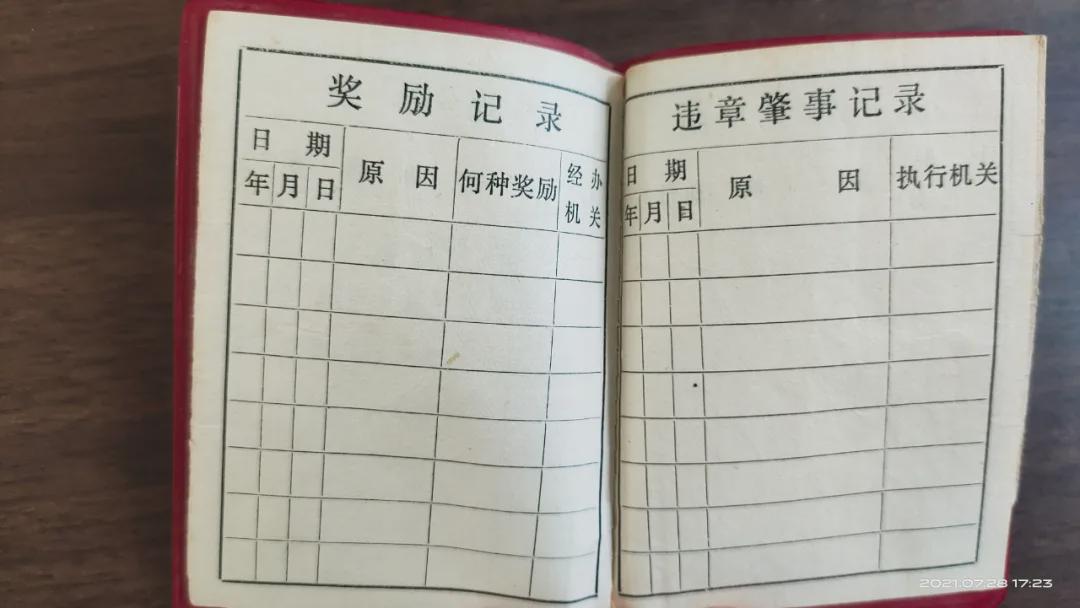 奖励记录
日期 原因 何种奖励 经办机关
年 月 日
违章肇事记录
日期 原因 执行机关
年 月 日
2021.07.28 17:23